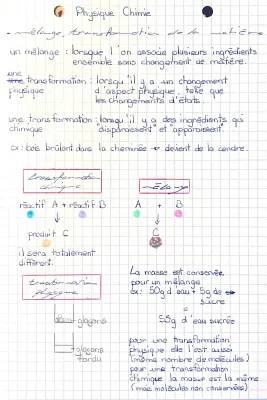 Physique Chimie
mélange, transformation de la matière
un mélange : lorsque l'on associe plusieurs ingrédients
ensemble sans changement de matière.
une transformation : lorsqu'il y a un changement
physique d'aspect physique, telle que
les changements d'états.
une transformation : lorsqu'il y a des ingrédients qui
chimique "disparaissent" et "apparaissent".
ex: bois brûlant dans la cheminée → devient de la cendre.
transformation
chimique
mélange
réactif A + réactif B
A + B
produit C
C
il sera totalement
différent.
transformation
physique
La masse est conservée
pour un mélange
ex: 50g d'eau + 5g de
sucre
=
55g d'eau sucrée
glaçons
glaçons
fondu
pour une transformation
physique elle l'est aussi
(même nombre de molécules)
pour une transformation
chimique la masse est la même
(mais molécules non conservées)